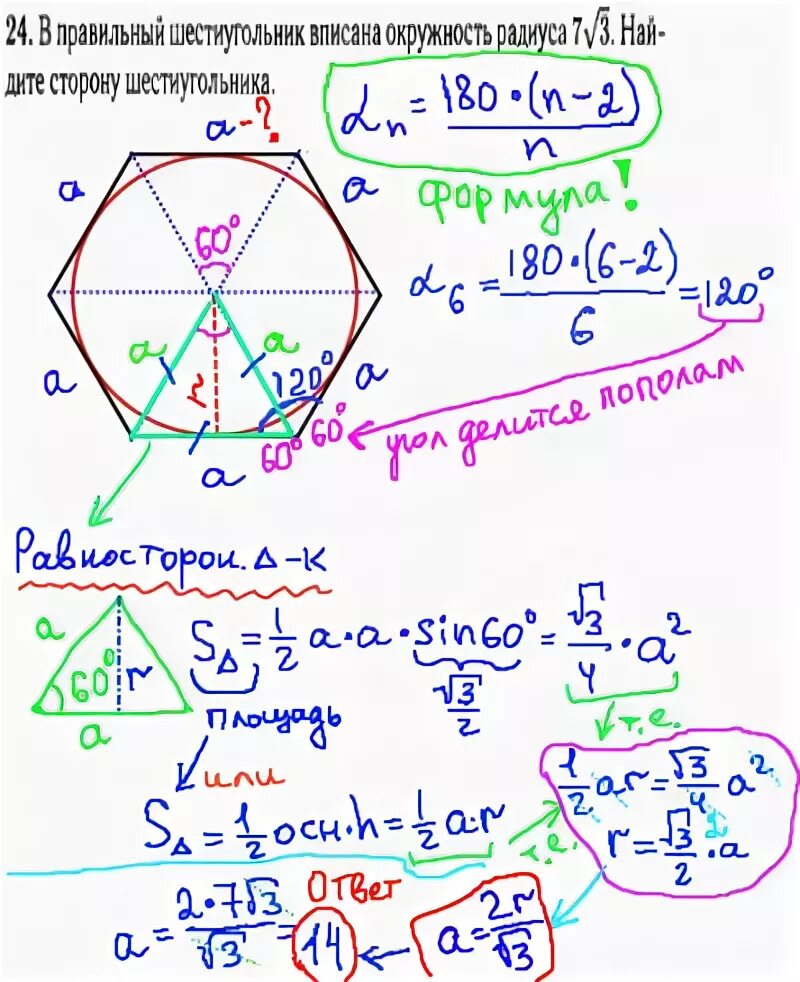 24. В правильный шестиугольник вписана окружность радиуса 7√3. Най-
дите сторону шестиугольника.
a-?
αn = 180·(n-2)/n
формула!
a
a
60°
α6 = 180·(6-2)/6 = 120°
a
a
a
120°
a
r
угол делится пополам
60°
60°
a
Равносторон. Δ-к
a
60°
r
a
SΔ = 1/2 a·a·sin60° = √3/4·a²
√3/2
площадь
т.е.
или
1/2 ar = √3/4 a²
SΔ = 1/2 осн·h = 1/2 a·r
т.е.
2
r = √3/2·a
Ответ
a = 2·7√3/√3 = 14
a = 2r/√3